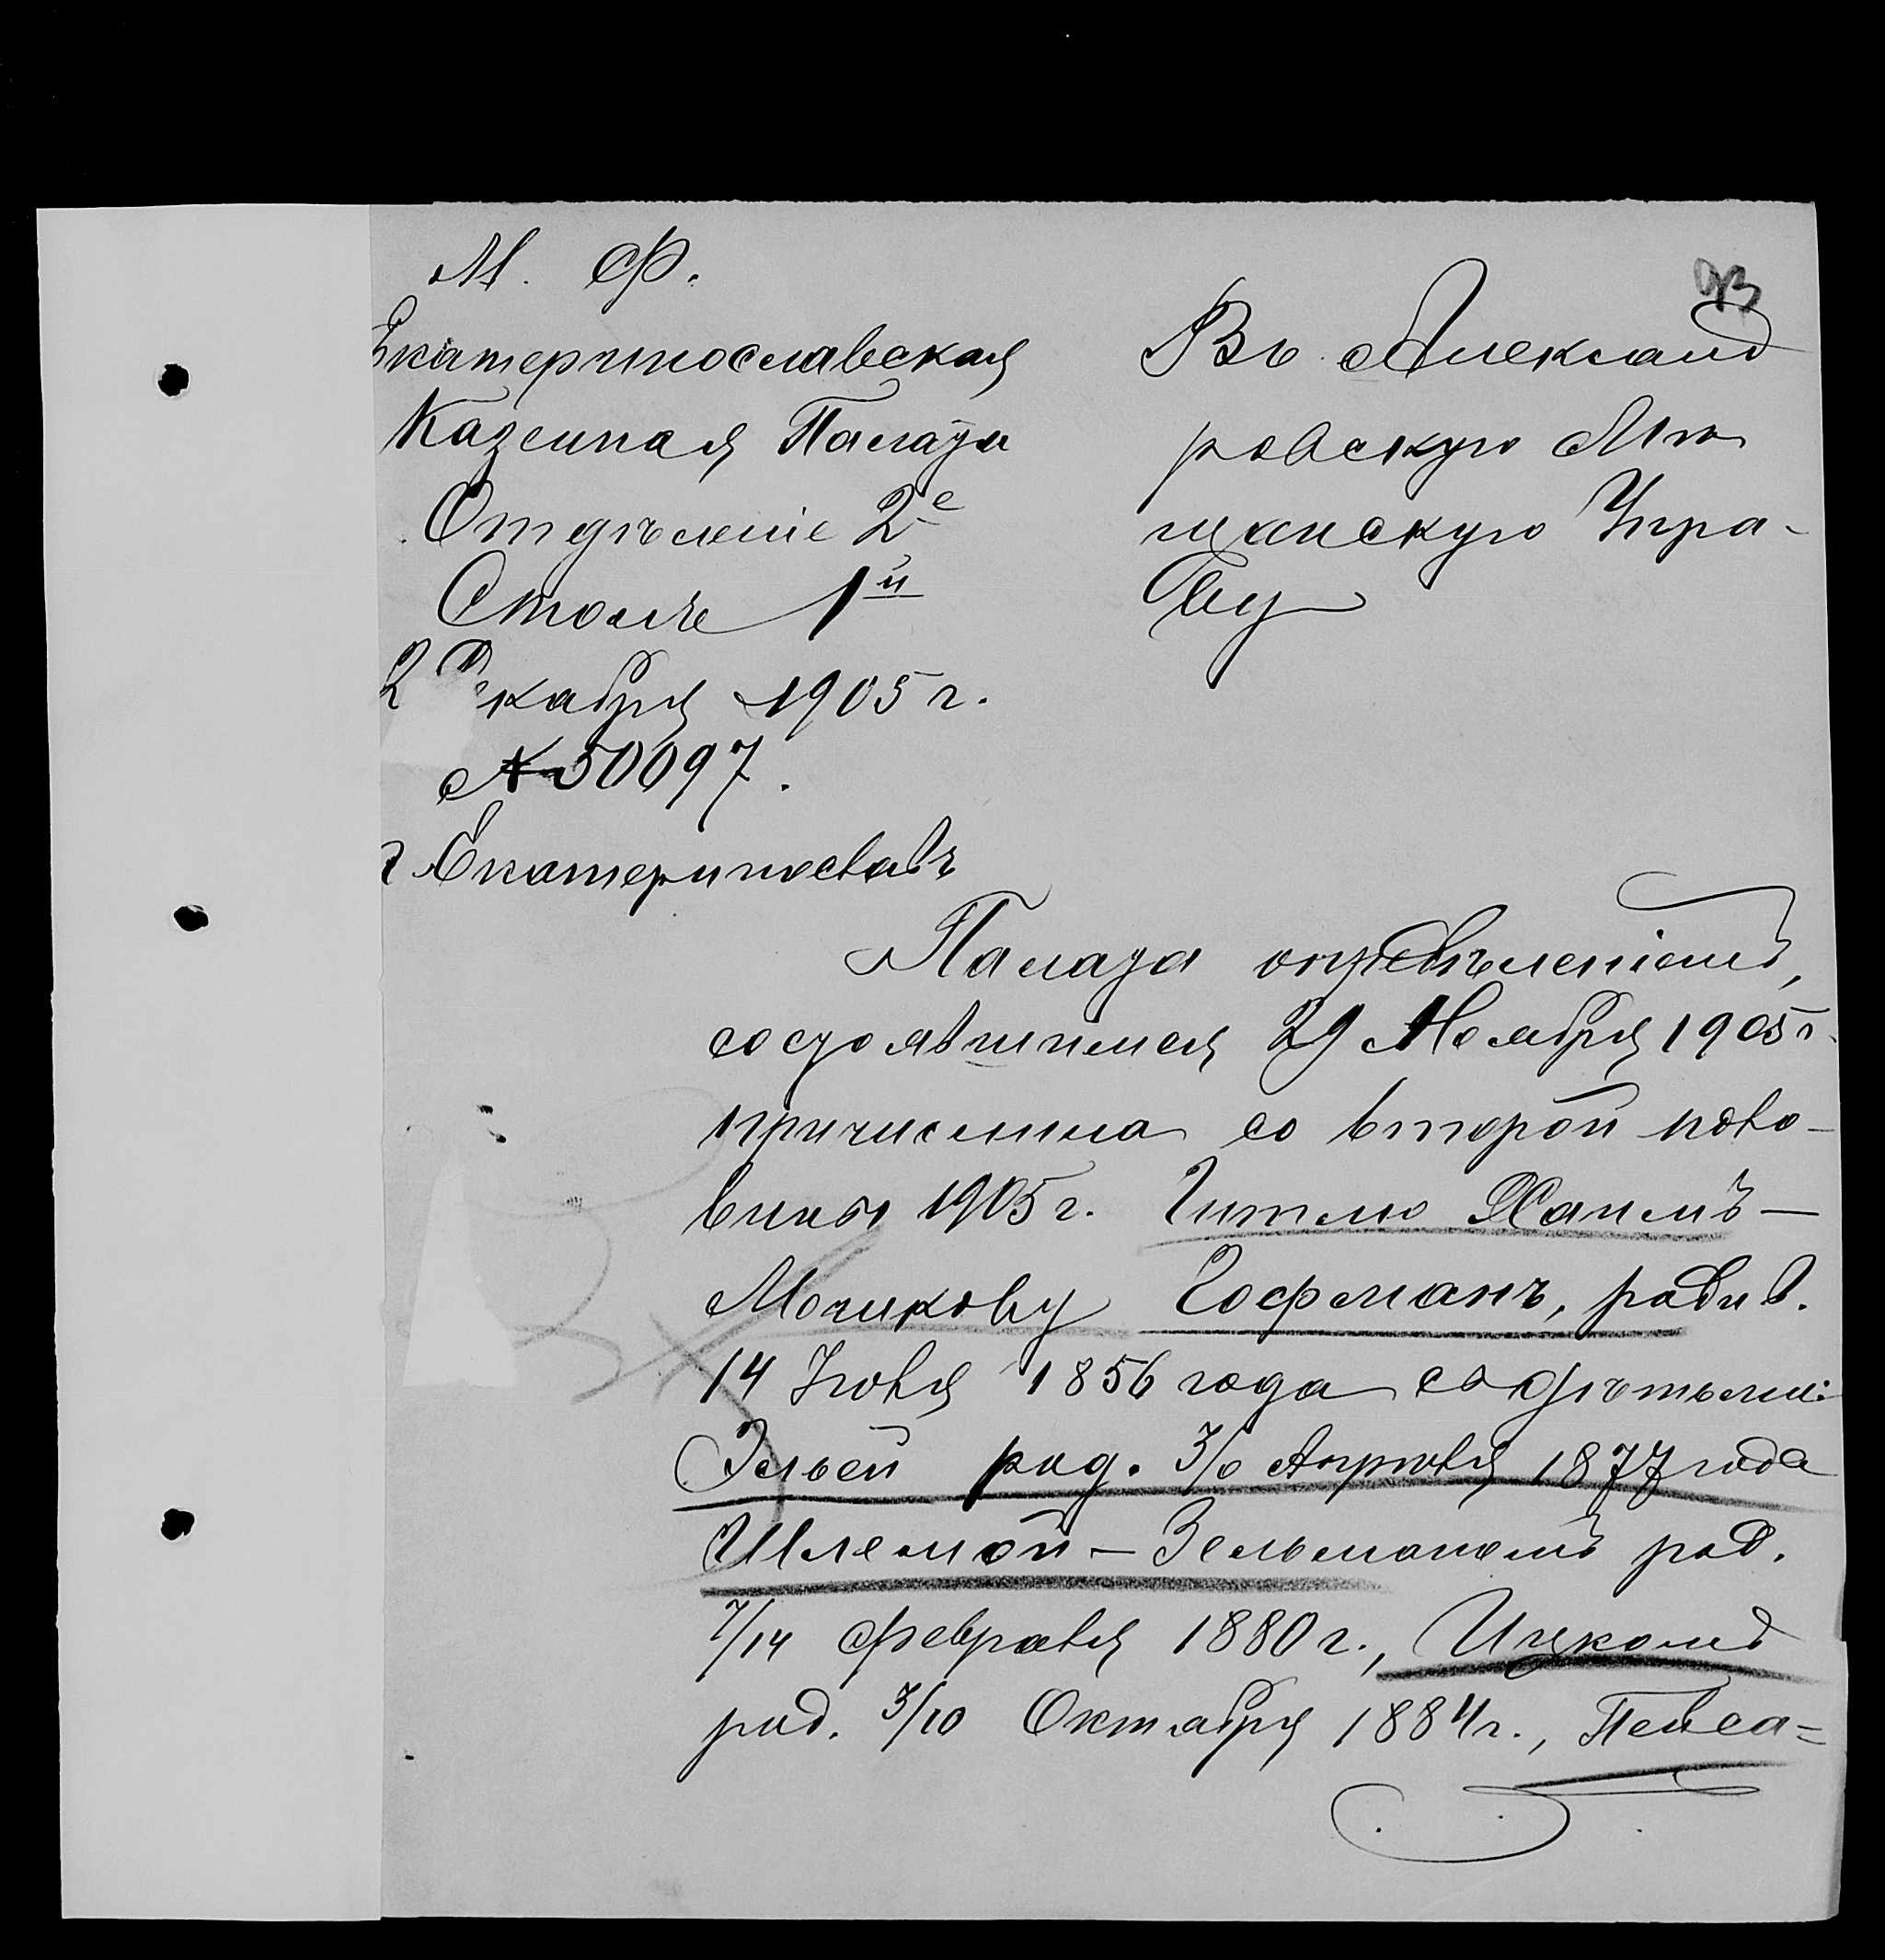 М. Ф.
Екатеринославская
Казенная Палата
Отделѣніе 2е
Столъ 1й
2 Декабря 1905 г.
№ 50097.
г Екатеринославъ
93
Въ Александ
ровскую Мѣ
щанскую Упра-
ву
Палата опредѣленіемъ,
состоявшимся 29 Ноября 1905 г.
причислила со второй поло-
вины 1905 г. Гитлю Хаимъ-
Мошкову Гофманъ, родив.
14 Іюля 1856 года съ дѣтьми:
Эльей род. 3/10 Апрѣля 1877 года
Шлемой-Зельманомъ род.
7/14 Февраля 1880 г., Ицкомъ
род. 3/10 Октября 1884 г., Пейса=